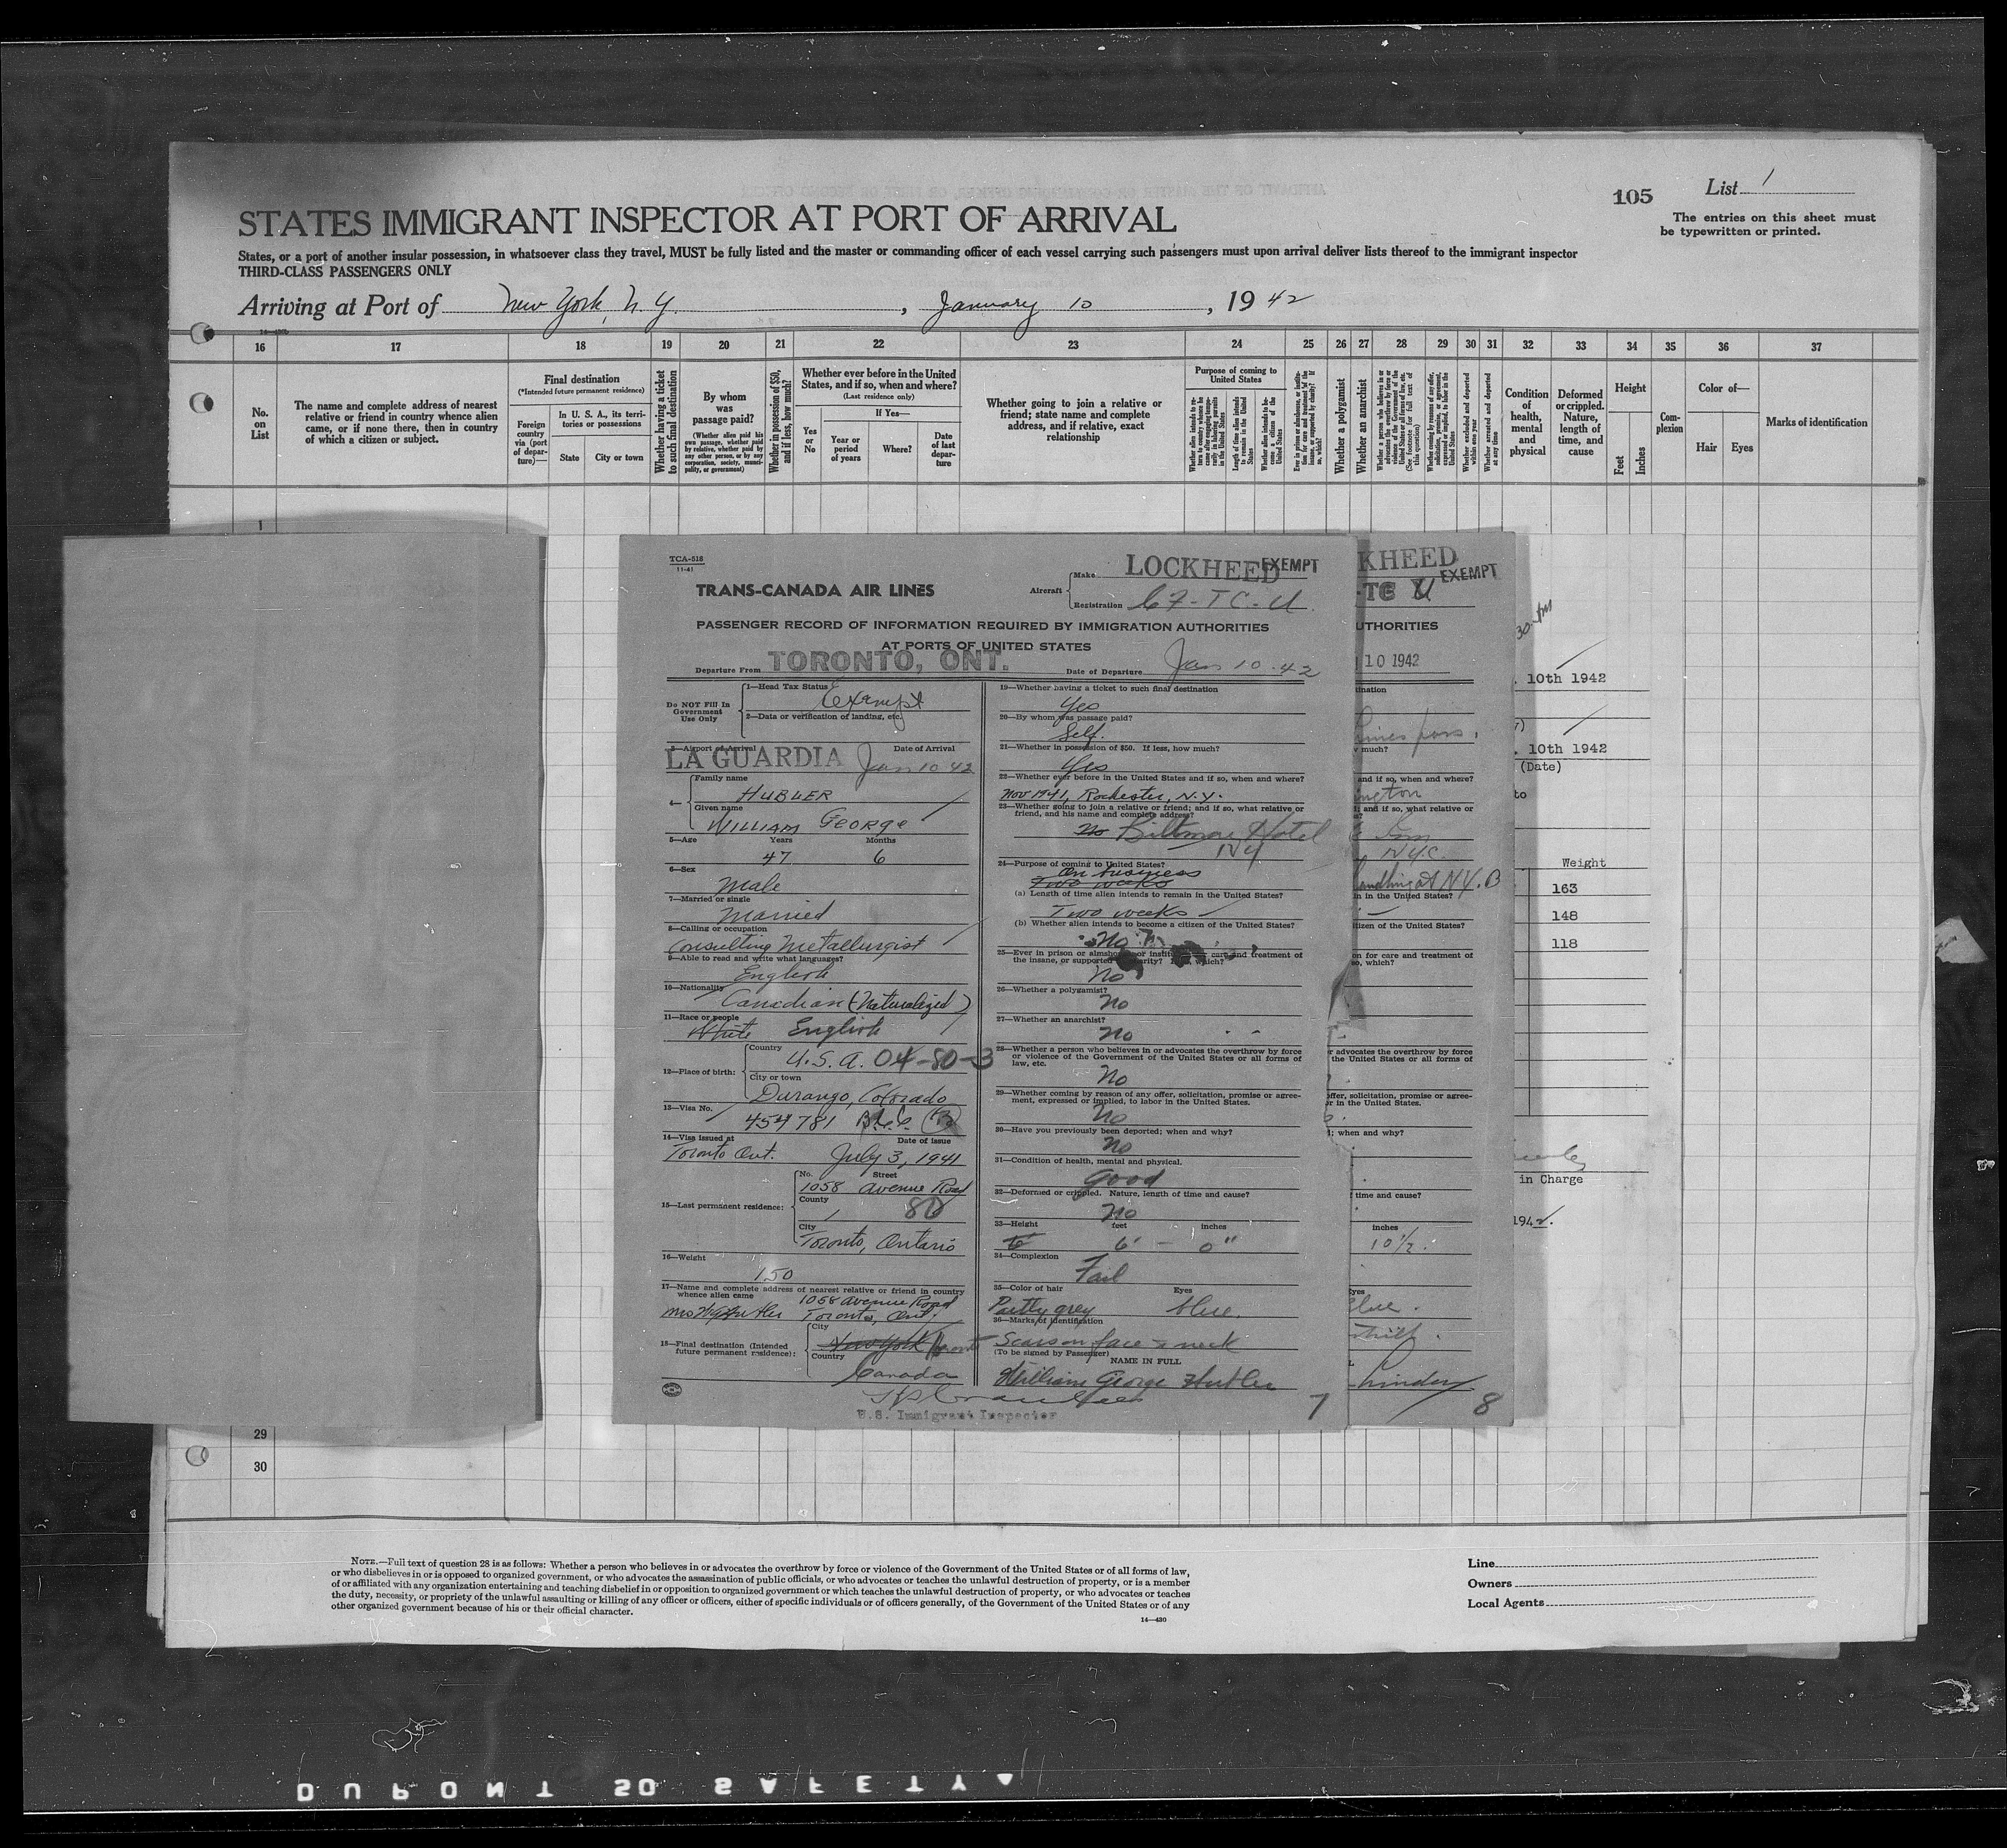 105
List 1
The entries on this sheet must
be typewritten or printed.
STATES IMMIGRANT INSPECTOR AT PORT OF ARRIVAL
States, or a port of another insular possession, in whatsoever class they travel, MUST be fully listed and the master or commanding officer of each vessel carrying such passengers must upon arrival deliver lists thereof to the immigrant inspector
THIRD-CLASS PASSENGERS ONLY
Arriving at Port of New York, N.Y. , January 10 , 1942
16 17 18 19 20 21 22 23 24 25 26 27 28 29 30 31 32 33 34 35 36 37
No. on List
The name and complete address of nearest
relative or friend in country whence alien
came, or if none there, then in country
of which a citizen or subject.
Final destination
(*Intended future permanent residence)
Foreign country via (port of departure)—
In U. S. A., its territories or possessions
State
City or town
Whether having a ticket to such final destination
By whom was passage paid?
(Whether alien paid his own passage, whether paid by relative, whether paid by any other person, or by any corporation, society, municipality, or government)
Whether in possession of $50, and if less, how much?
Whether ever before in the United
States, and if so, when and where?
(Last residence only)
Yes or No
If Yes—
Year or period of years
Where?
Date of last departure
Whether going to join a relative or
friend; state name and complete
address, and if relative, exact
relationship
Purpose of coming to United States
Length of time alien intends to remain in the United States
Whether alien intends to become a citizen of the United States
Whether a polygamist
Whether an anarchist
Whether excluded and deported within one year
Whether arrested and deported at any time
Condition of health, mental and physical
Deformed or crippled. Nature, length of time, and cause
Height
Feet
Inches
Complexion
Color of—
Hair
Eyes
Marks of identification
1
TCA-518
11-41
TRANS-CANADA AIR LINES
Aircraft
Make LOCKHEED EXEMPT
Registration CF-TC-U.
PASSENGER RECORD OF INFORMATION REQUIRED BY IMMIGRATION AUTHORITIES
AT PORTS OF UNITED STATES
Departure From TORONTO, ONT.
Date of Departure Jan 10-42
Do NOT Fill In
Government
Use Only
1—Head Tax Status Exempt
2—Data or verification of landing, etc.
3—Airport of Arrival LA GUARDIA
Date of Arrival Jan 10 42
4— Family name HUBLER
Given name WILLIAM GEORGE
5—Age Years 47 Months 6
6—Sex Male
7—Married or single Married
8—Calling or occupation
Consulting Metallurgist
9—Able to read and write what languages?
English
10—Nationality Canadian (Naturalized)
11—Race or people White English
12—Place of birth: Country U.S.A. 04-80-3
City or town Durango, Colorado
13—Visa No. 454781
14—Visa issued at Toronto Ont.
Date of issue July 3, 1941
15—Last permanent residence: No. 1058 Street Avenue Road
County 1 80
City Toronto, Ontario
16—Weight 150
17—Name and complete address of nearest relative or friend in country
whence alien came 1058 Avenue Road
Toronto, Ont.
18—Final destination (Intended
future permanent residence):
City New York Toronto
Country Canada
U.S. Immigrant Inspector
19—Whether having a ticket to such final destination
Yes
20—By whom was passage paid?
Self.
21—Whether in possession of $50. If less, how much?
Yes
22—Whether ever before in the United States and if so, when and where?
Nov 1941, Rochester, N.Y.
23—Whether going to join a relative or friend; and if so, what relative or
friend, and his name and complete address?
No Biltmore Hotel
NY
24—Purpose of coming to United States?
On business
Two weeks
(a) Length of time alien intends to remain in the United States?
Two weeks
(b) Whether alien intends to become a citizen of the United States?
No
25—Ever in prison or almshouse or institution for care and treatment of
the insane, or supported by charity? If so, which?
No
26—Whether a polygamist?
No
27—Whether an anarchist?
No
28—Whether a person who believes in or advocates the overthrow by force
or violence of the Government of the United States or all forms of
law, etc.
No
29—Whether coming by reason of any offer, solicitation, promise or agreement, expressed or implied, to labor in the United States.
No
30—Have you previously been deported; when and why?
No
31—Condition of health, mental and physical.
Good
32—Deformed or crippled. Nature, length of time and cause?
No
33—Height feet inches
6' 6' - 0"
34—Complexion
Fair
35—Color of hair Partly grey Eyes blue.
36—Marks of identification
Scars on face & neck
(To be signed by Passenger)
NAME IN FULL
William George Hubler
7
KHEED
EXEMPT
-TC U
UTHORITIES
10 1942
ination
pass.
much?
and if so, when and where?
ington
; and if so, what relative or
NYC.
Landing at N.Y.
in in the United States?
tizen of the United States?
on for care and treatment of
so, which?
r advocates the overthrow by force
the United States or all forms of
offer, solicitation, promise or agree-
r in the United States.
; when and why?
f time and cause?
inches
10 1/2.
Eyes
blue.
8
30
10th 1942
10th 1942
(Date)
to
Weight
163
148
118
in Charge
1942.
29
30
NOTE.—Full text of question 28 is as follows: Whether a person who believes in or advocates the overthrow by force or violence of the Government of the United States or of all forms of law,
or who disbelieves in or is opposed to organized government, or who advocates the assassination of public officials, or who advocates or teaches the unlawful destruction of property, or is a member
of or affiliated with any organization entertaining and teaching disbelief in or opposition to organized government or which teaches the unlawful destruction of property, or who advocates or teaches
the duty, necessity, or propriety of the unlawful assaulting or killing of any officer or officers, either of specific individuals or of officers generally, of the Government of the United States or of any
other organized government because of his or their official character.
14—430
Line
Owners
Local Agents
DUPONT SO SAFETY